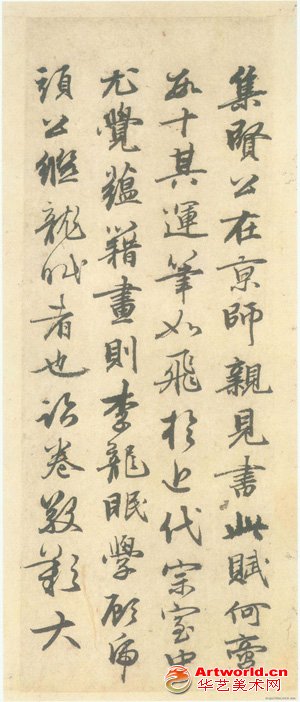 集賢公在京師親見書此賦何啻
數十其運筆如飛於近代宗室中
尤覺蘊藉畫則李龍眠學顧虎
頭公繼龍眠者也卷歎大
Artworld.cn
华艺美术网